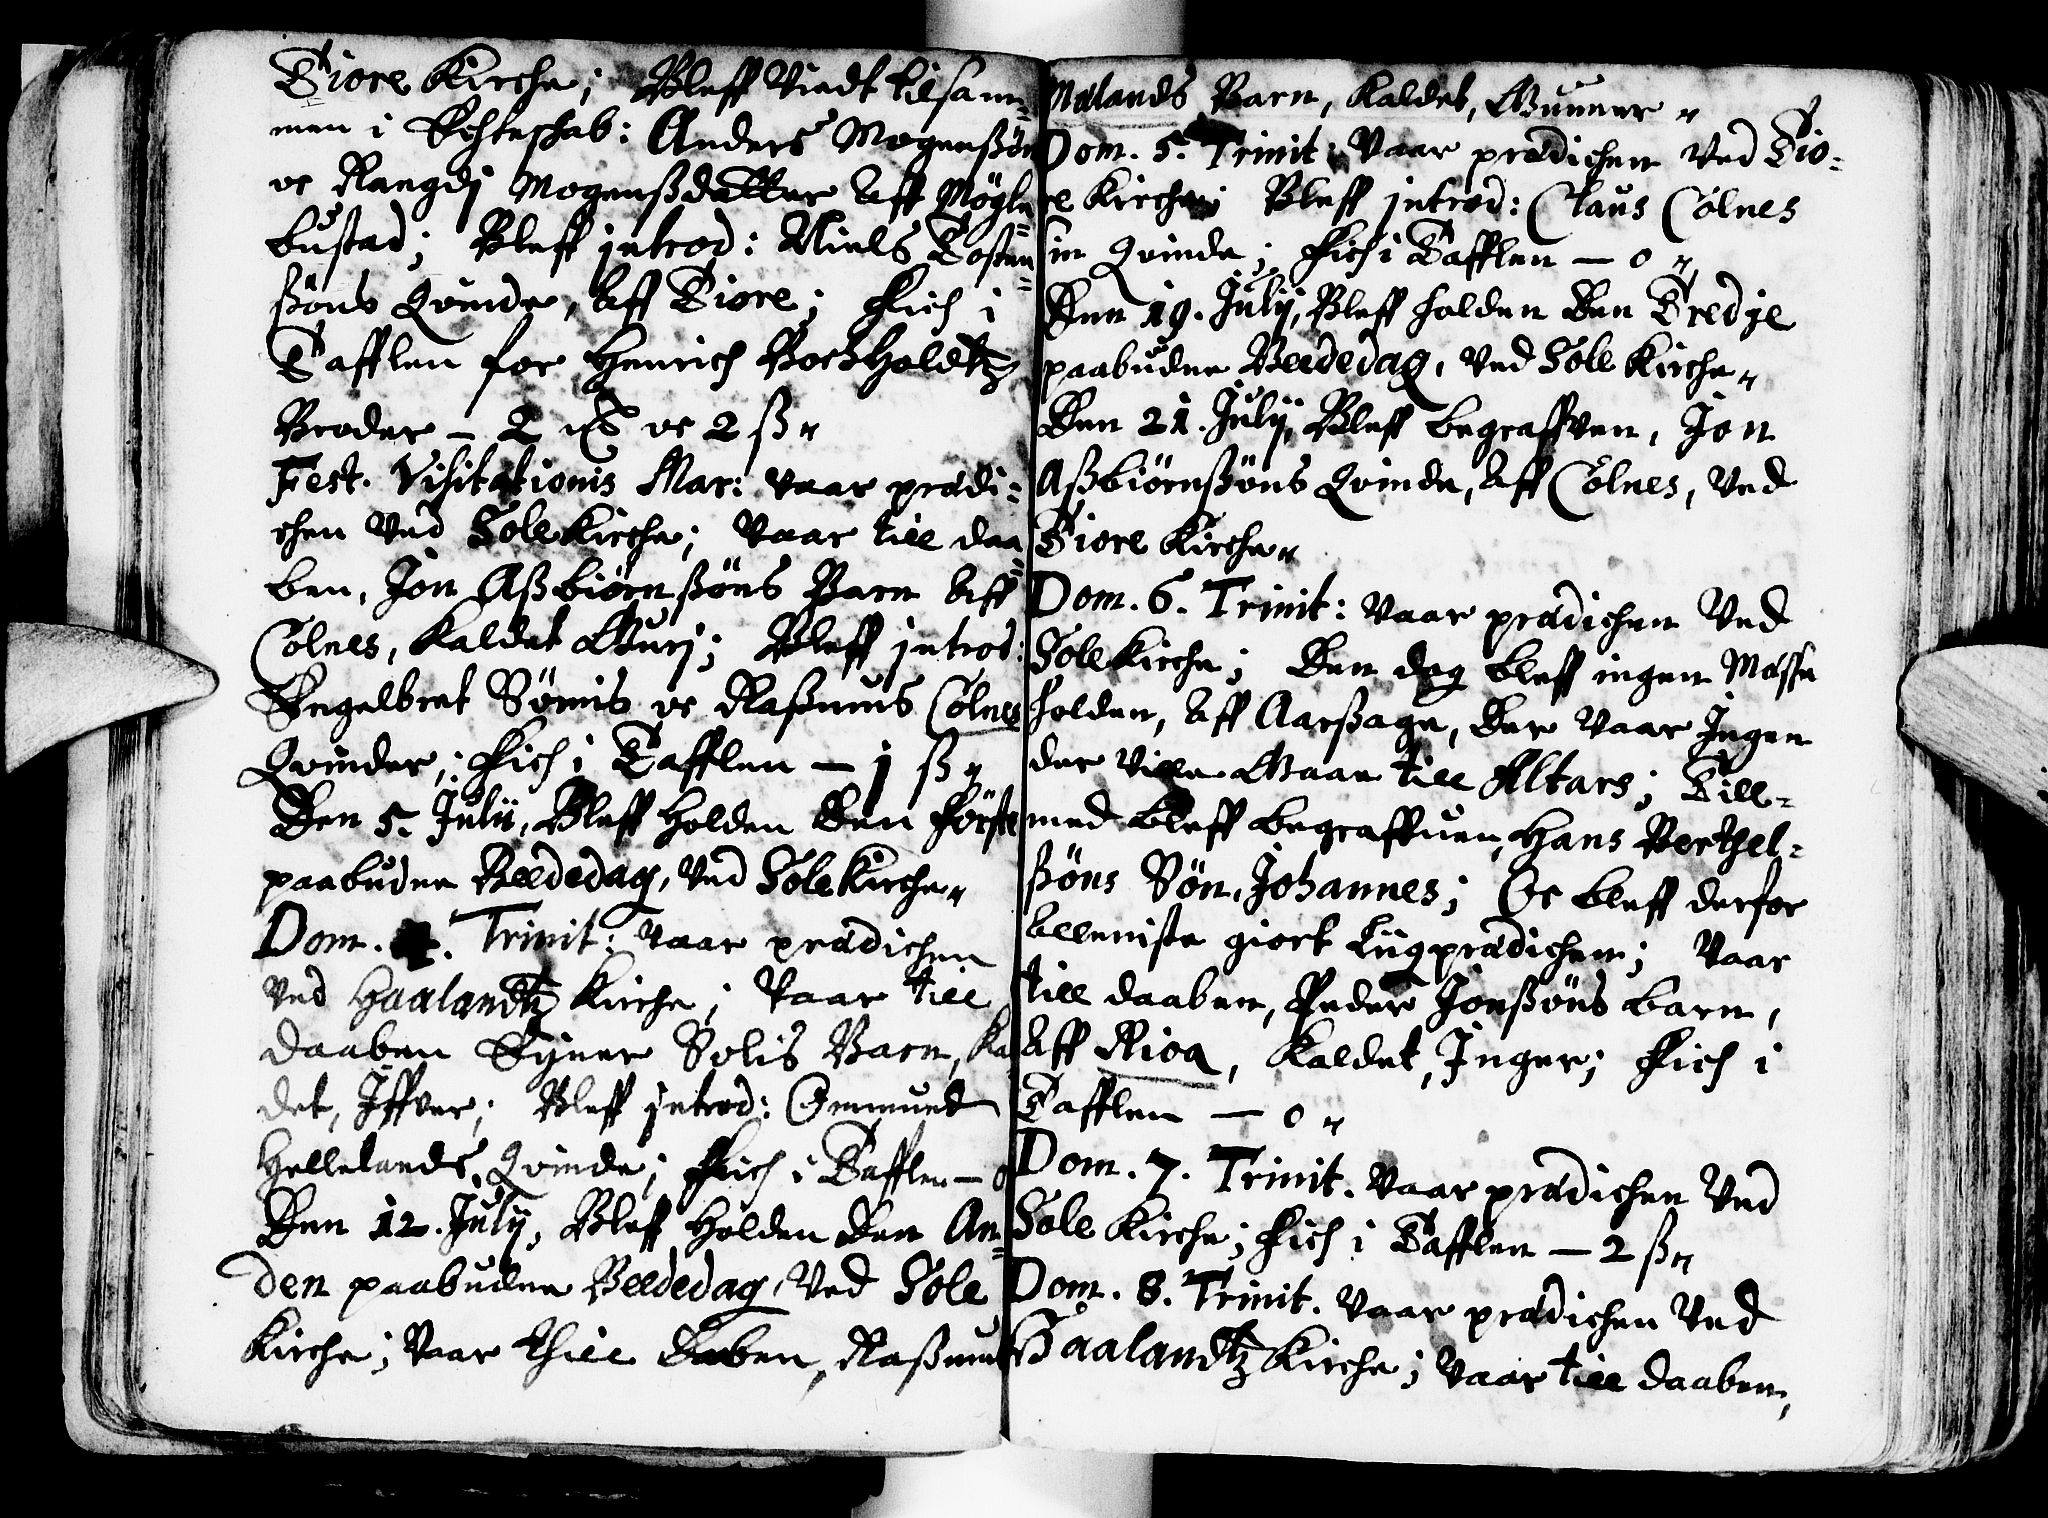 Tiore Kirche; Bleff Viedt tilsam-
men i Echteschab: Anders Mogenßøn
oc Rangdj Mogenßdatter Aff Møgle-
bustad; Bleff jntrod: Niels Tosten-
ßøns Qvinde, Aff Tiore; Fich i
Tafflen for Henrich Bockholdtz
Broder – 2 oc 2 ß"
Fest. Visitationis Mar: vaar prædi-
chen Ved Sole Kirche; Vaar till daa-
ben, Jon Aßbiørnßøns Barn Aff
Colnes, Kaldet Gurj; Bleff jntrod:
Engelbret Sømis oc Raßmus Colnes
Qvinder; Fich i Tafflen – j ß"
Den 5. Julii, Bleff Holden Den Første
paabudne Beededag, Ved Sole Kirche"
Dom. 4. Trinit: Vaar prædichen
Ved Haalandtz Kirche; Vaar till
daaben Eyner Solis Barn, Kal
det, Iffver; Bleff jntrod: Ommund
Hellelands Qvinde; Fich i Tafflen – 0
Den 12. Julij, Bleff Holden Den An-
den paabudne Beededag, Ved Sole
Kirche; Vaar thill Daben, Raßmus
Malands Barn, Kaldet, Gunner "
Dom. 5. Trinit: Vaar prædichen Ved Tio-
re Kirche; Bleff jntrod: Claus Colnes
sin Qvinde; Fich i Tafflen – 0 "
Den 19. Julij, Bleff holden Den Tredje
paabudne Beededag, Ved Sole Kirche"
Den 21. Julij, Bleff begraffven, Jon
Aßbiørnßøns Qvinde, Aff Colnes, Ved
Tiore Kirche"
Dom. 6. Trinit: Vaar prædichen Ved
Sole Kirche; Den dag bleff ingen Mæsse
holden, Aff Aarßage, Der Vaar Ingen
der Ville Gaae till Altars; Till-
med bleff begraffuen, Hans Berthel-
ßøns Søn, Johannes; Oc bleff derfor
alleniste giort Liigprædichen; Vaar
till daaben, Peder Jonßøns barn,
Aff Rioa, Kaldet, Inger; Fich i
Tafflen – 0 "
Dom. 7. Trinit. Vaar prædichen Ved
Sole Kirche; Fich i Tafflen – 2 ß"
Dom. 8. Trinit. Vaar prædichen Ved
Haalandtz Kirche; Vaar till daaben,